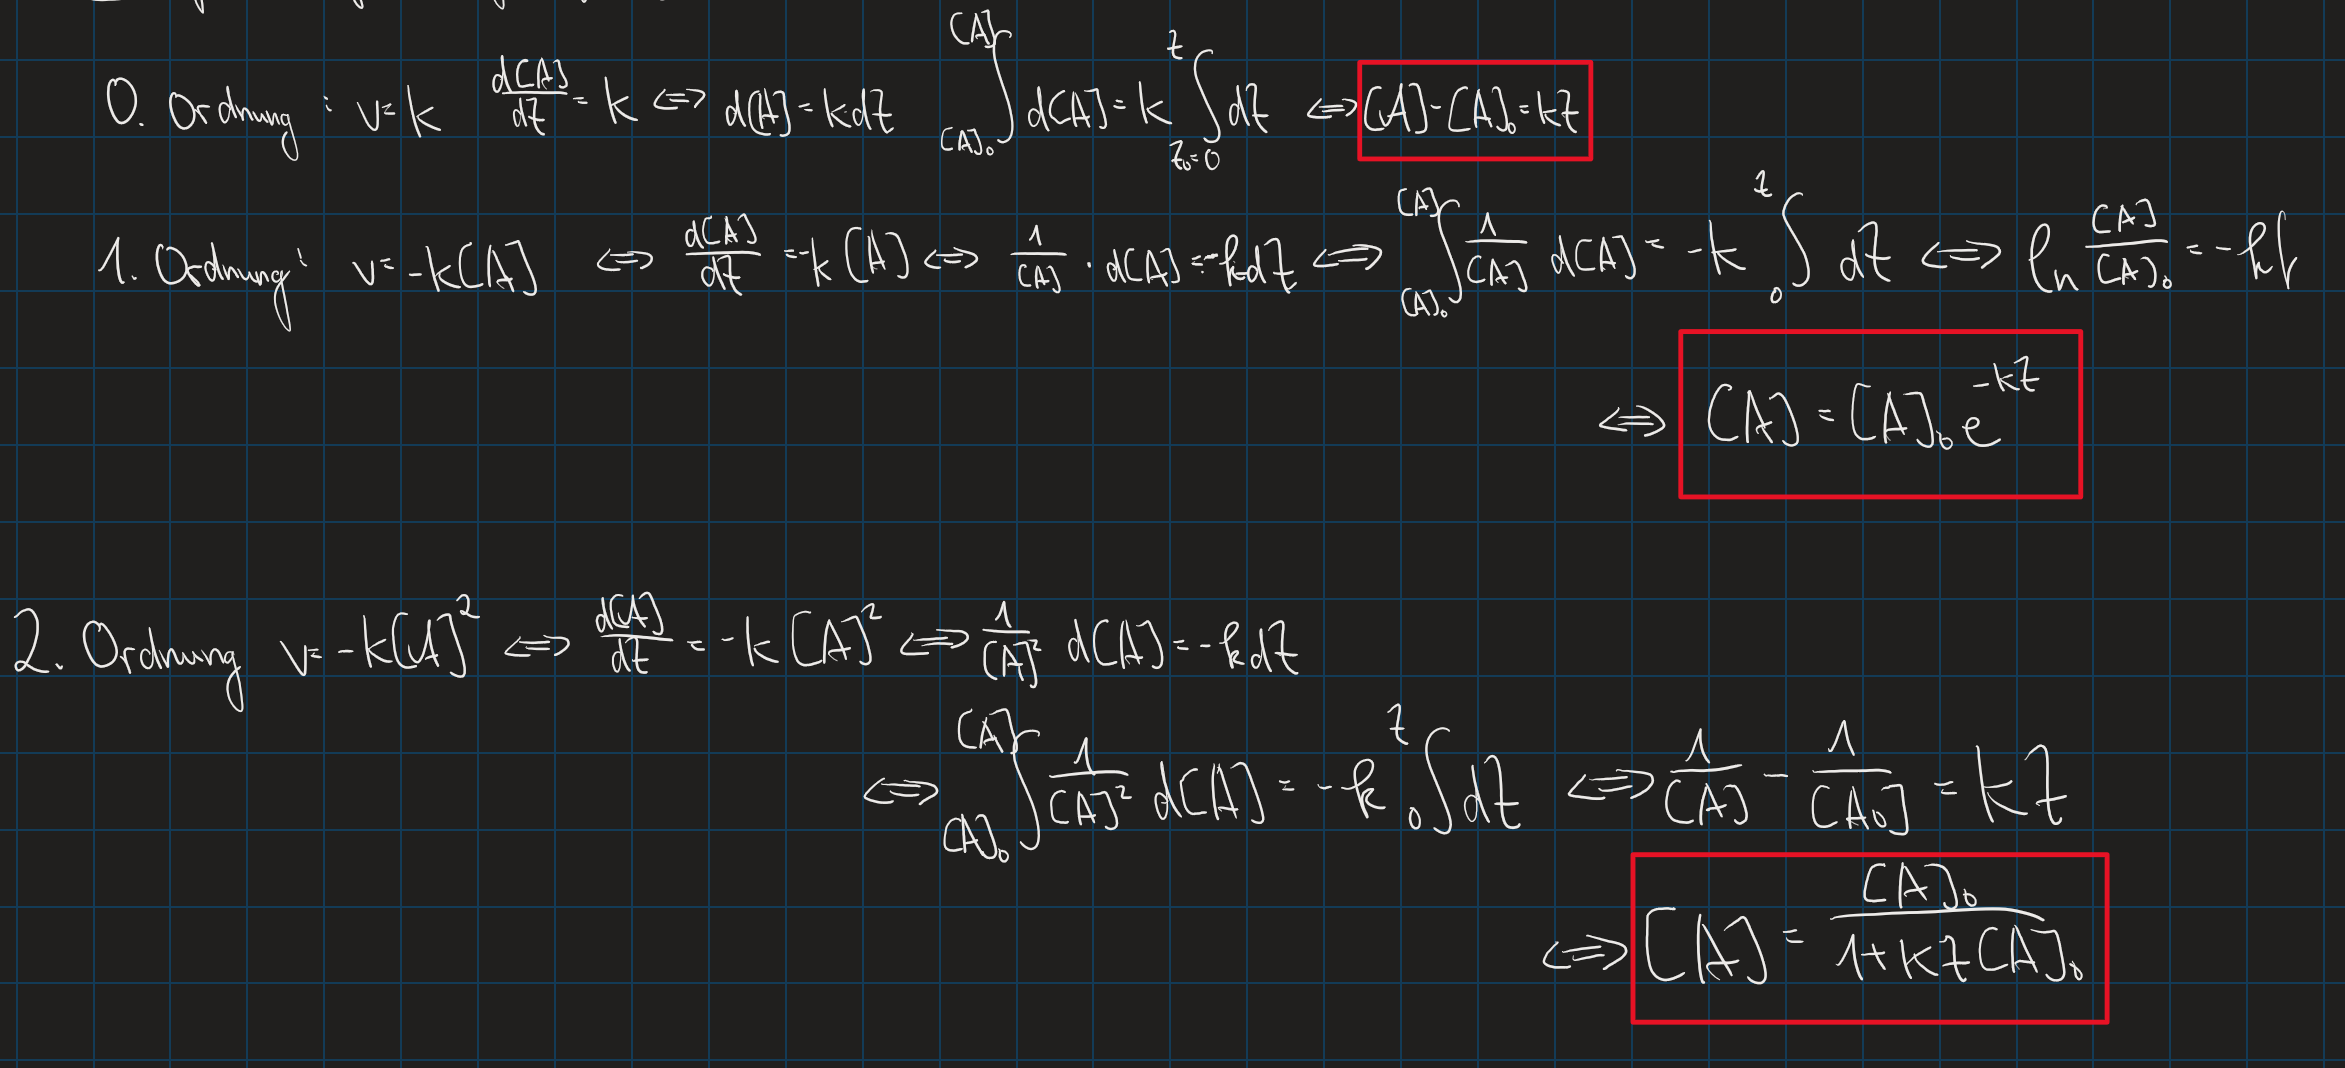 0. Ordnung: v=k d[A]/dt = k ⇔ d[A]=kdt ∫_{[A]₀}^{[A]} d[A] = k ∫_{t₀=0}^{t} dt ⇔ [A]-[A]₀=kt
1. Ordnung: v=-k[A] ⇔ d[A]/dt = -k[A] ⇔ 1/[A] · d[A] = -kdt ⇔ ∫_{[A]₀}^{[A]} 1/[A] d[A] = -k ∫_{0}^{t} dt ⇔ ln [A]/[A]₀ = -kt
⇔ [A] = [A]₀ e^{-kt}
2. Ordnung v=-k[A]² ⇔ d[A]/dt = -k[A]² ⇔ 1/[A]² d[A] = -kdt
⇔ ∫_{[A]₀}^{[A]} 1/[A]² d[A] = -k ∫_{0}^{t} dt ⇔ 1/[A] - 1/[A₀] = kt
⇔ [A] = [A]₀/(1+kt[A]₀)